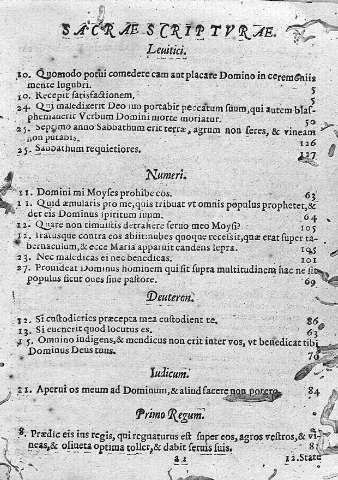 SACRAE SCRIPTVRAE.
Leuitici.
10. Quomodo potui comedere eam aut placare Domino in ceremoniis
mente lugubri. 5
10. Recepit satisfactionem. 5
24. Qui maledixerit Deo suo portabit peccatum suum, qui autem blas-
phemauerit Verbum Domini morte moriatur. 50
25. Septimo anno Sabbathum erit terræ, agrum non seres, & vineam
non putabis. 126
25. Sabbathum requietiores. 127
Numeri.
11. Domini mi Moyses prohibe eos. 63
11. Quid æmularis pro me, quis tribuat vt omnis populus prophetet, &
det eis Dominus spiritum suum. 64
12. Quare non timuistis detrahere seruo meo Moysi? 105
12. Iratusque contra eos abiit, nubes quoque recessit, quæ erat super ta-
bernaculum, & ecce Maria apparuit candens lepra. 105
23. Nec maledicas ei nec benedicas. 101
27. Prouideat Dominus hominem qui sit supra multitudinem hac ne sit
populus sicut oues sine pastore. 69
Deuteron.
12. Si custodieris præcepta mea custodient te. 86
13. Si euenerit quod locutus es. 63
15. Omnino indigens, & mendicus non erit inter vos, vt benedicat tibi
Dominus Deus tuus. 70
Iudicum.
11. Aperui os meum ad Dominum, & aliud facere non potero. 84
Primo Regum.
8. Prædic eis ius regis, qui regnaturus est super eos, agros vestros, & vi-
neas, & oliueta optima tollet, & dabit seruis suis. 81
12. State